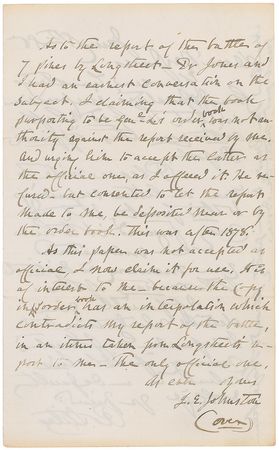 As to the report of the battles of
7 pines by Longstreet - Dr Jones and
I had an earnest conversation on the
subject. I claiming that the book
purporting to be Genl Lee's order book, was not au-
thority against the report received by me.
And urging him to accept the latter as
the official one, as I offered it. He re-
fused - but consented to let the report
made to me, be deposited near or by
the order book. This was after 1878.
As this paper was not accepted as
official I now claim it for use. It is
of interest to me - because the copy
in order book has an interpolation which
contradicts my report of the battle,
in an item taken from Longstreet's re-
port to me - the only official one.
As ever yours
J. E. Johnston
Over